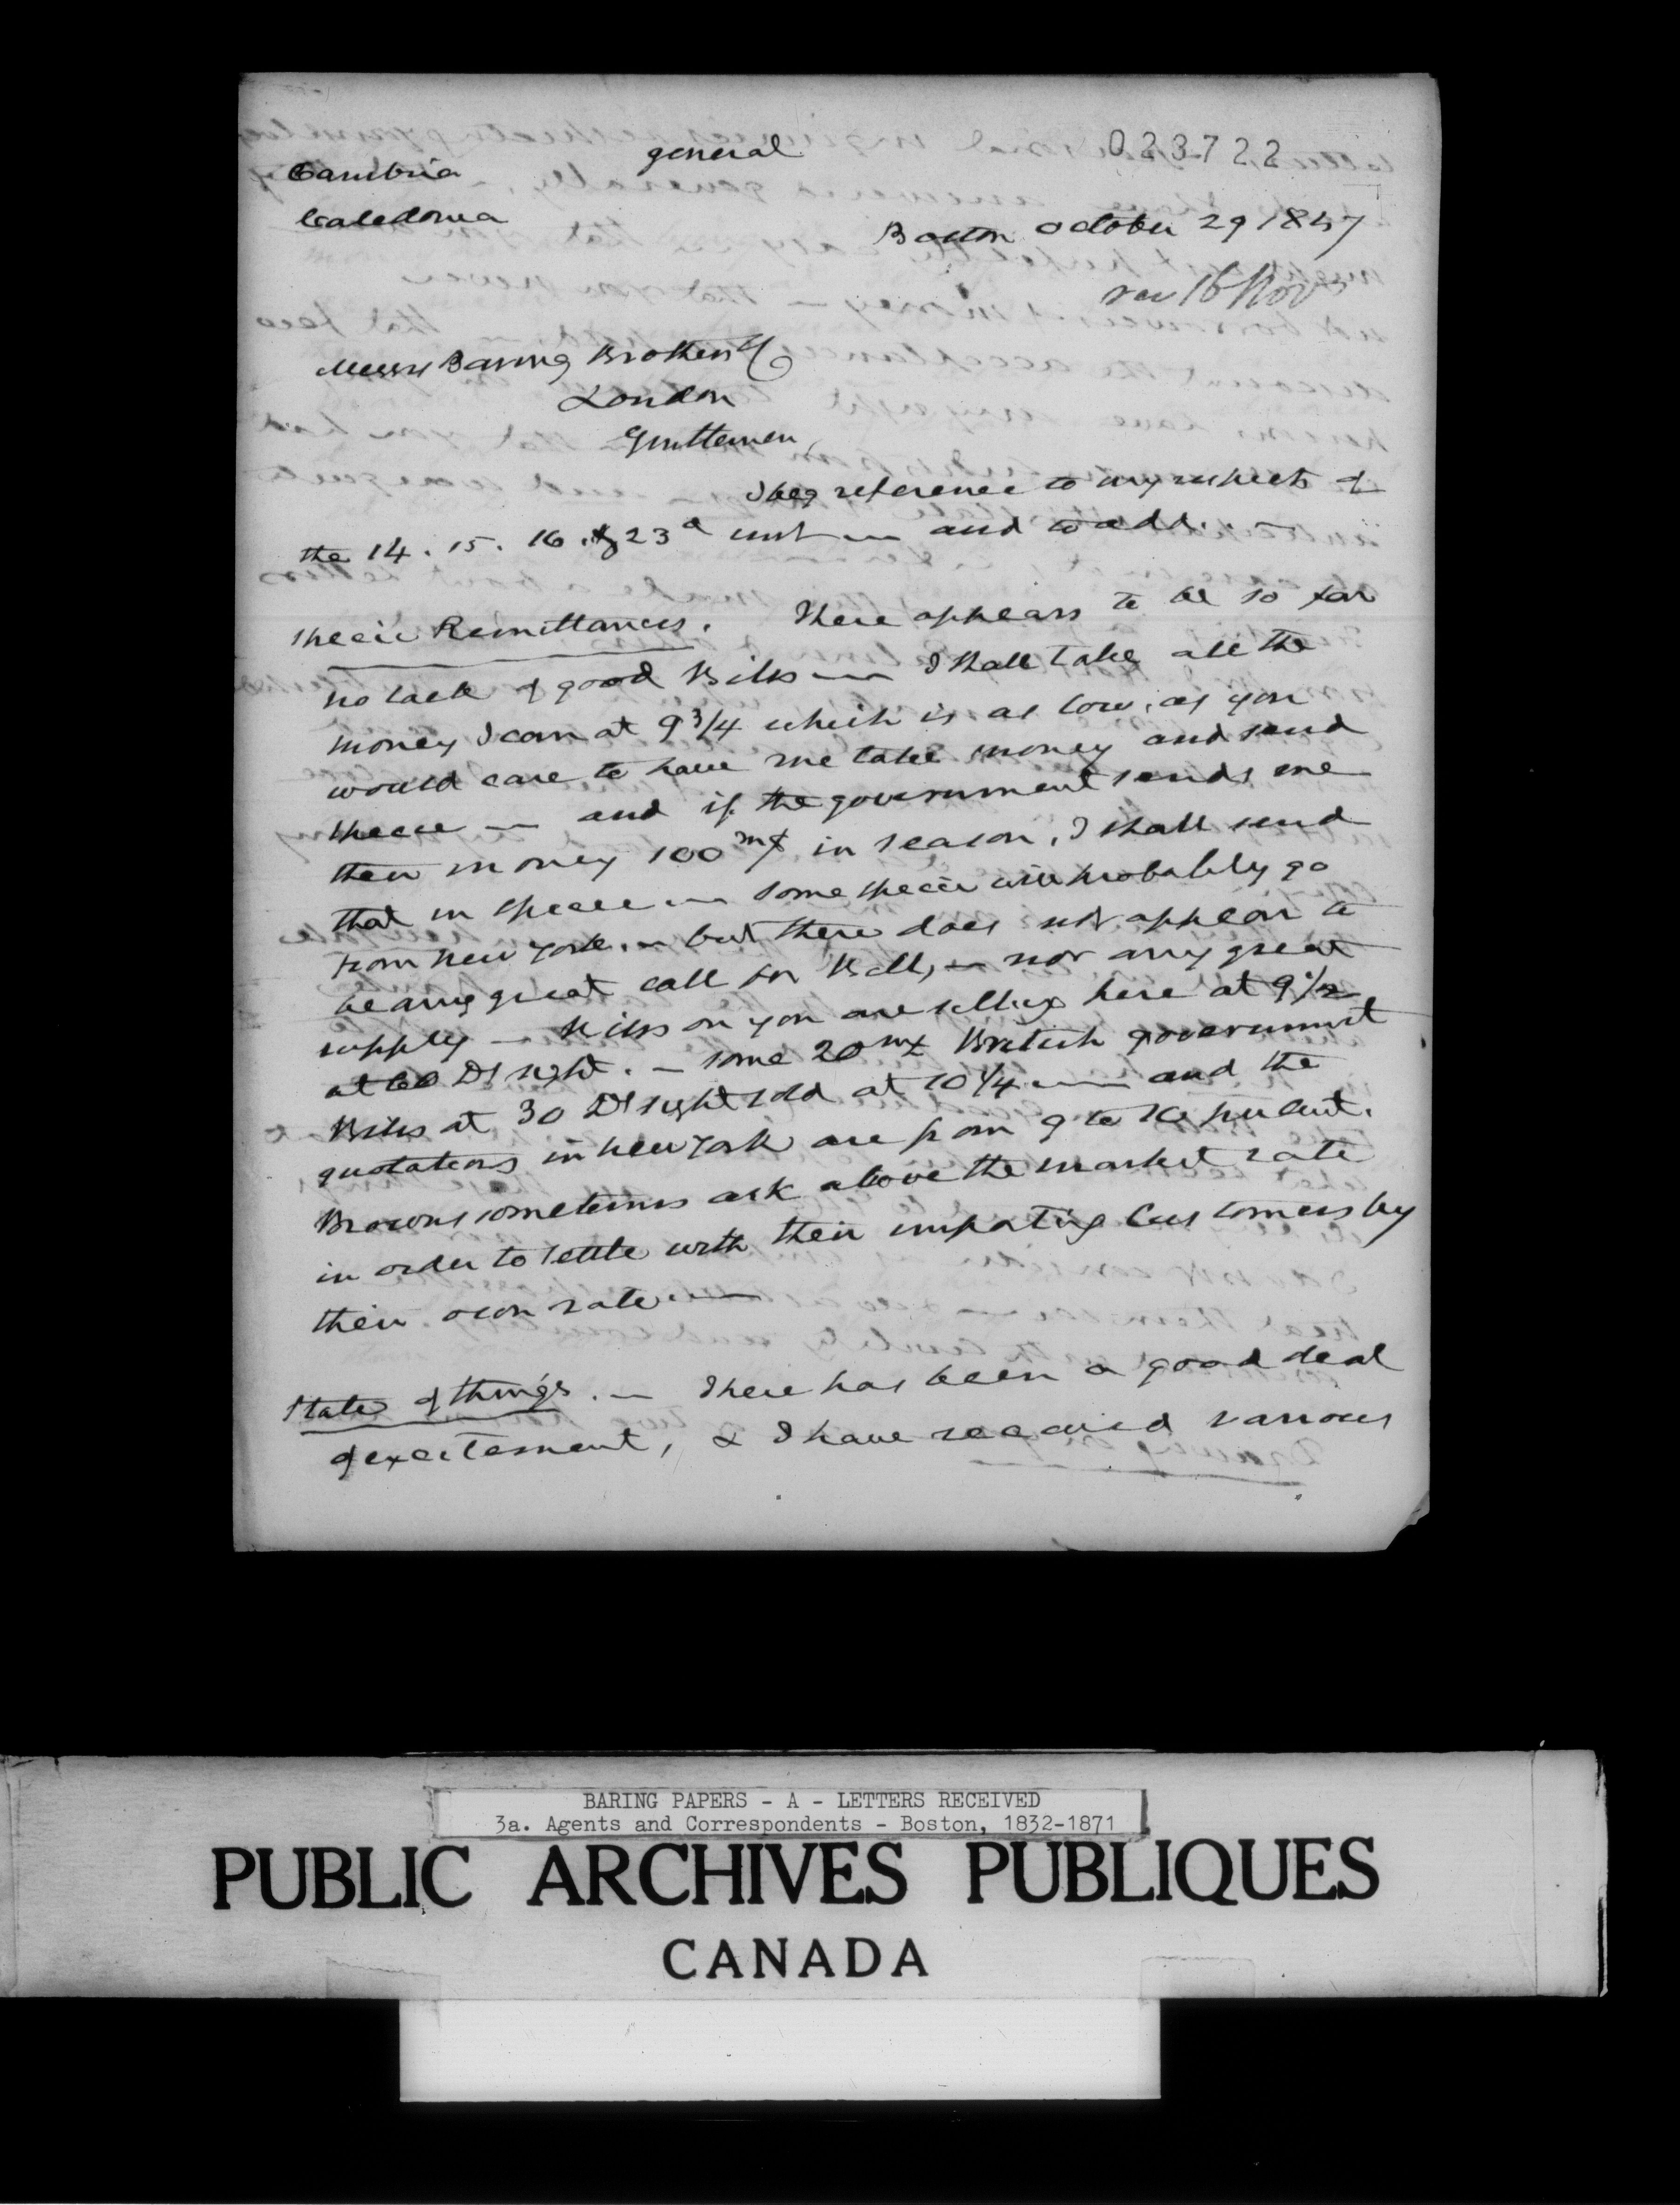 general
023722
Cambria
Caledonia
Boston October 29 1847
rec 16 Nov
Messrs Baring Brothers & Co
London
Gentlemen,
I beg reference to my respects of
the 14. 15. 16. & 23d inst — and to add.
Specie Remittances. There appears to be so far
no lack of good Bills — I shall take all the
money I can at 9 3/4 which is as low, as you
would care to have me take money and send
specie — and if the government sends me
their money 100 m£ in season, I shall send
that in specie — some specie will probably go
from New York. — but there does not appear to
be any great call for Bills, — nor any great
supply — Bills on you are selling here at 9 1/2
at 60 Ds sight. — some 20 m£ British government
Bills at 30 Ds sight sold at 10 1/4 — and the
quotations in New York are from 9 to 10 per cent.
Browns sometimes ask above the market rate
in order to settle with their importing Customers by
their own rate —
State of things. — There has been a good deal
of excitement, & I have received various
BARING PAPERS - A - LETTERS RECEIVED
3a. Agents and Correspondents - Boston, 1832-1871
PUBLIC ARCHIVES PUBLIQUES
CANADA